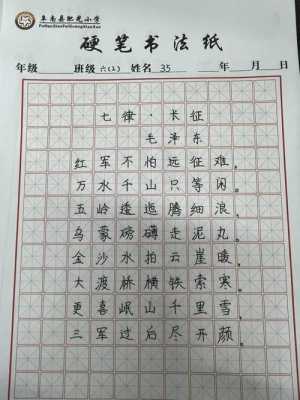 硬笔书法纸
年级 班级 六(2) 姓名 35 年 月 日
七律·长征
毛泽东
红军不怕远征难,
万水千山只等闲。
五岭逶迤腾细浪,
乌蒙磅礴走泥丸。
金沙水拍云崖暖,
大渡桥横铁索寒。
更喜岷山千里雪,
三军过后尽开颜。